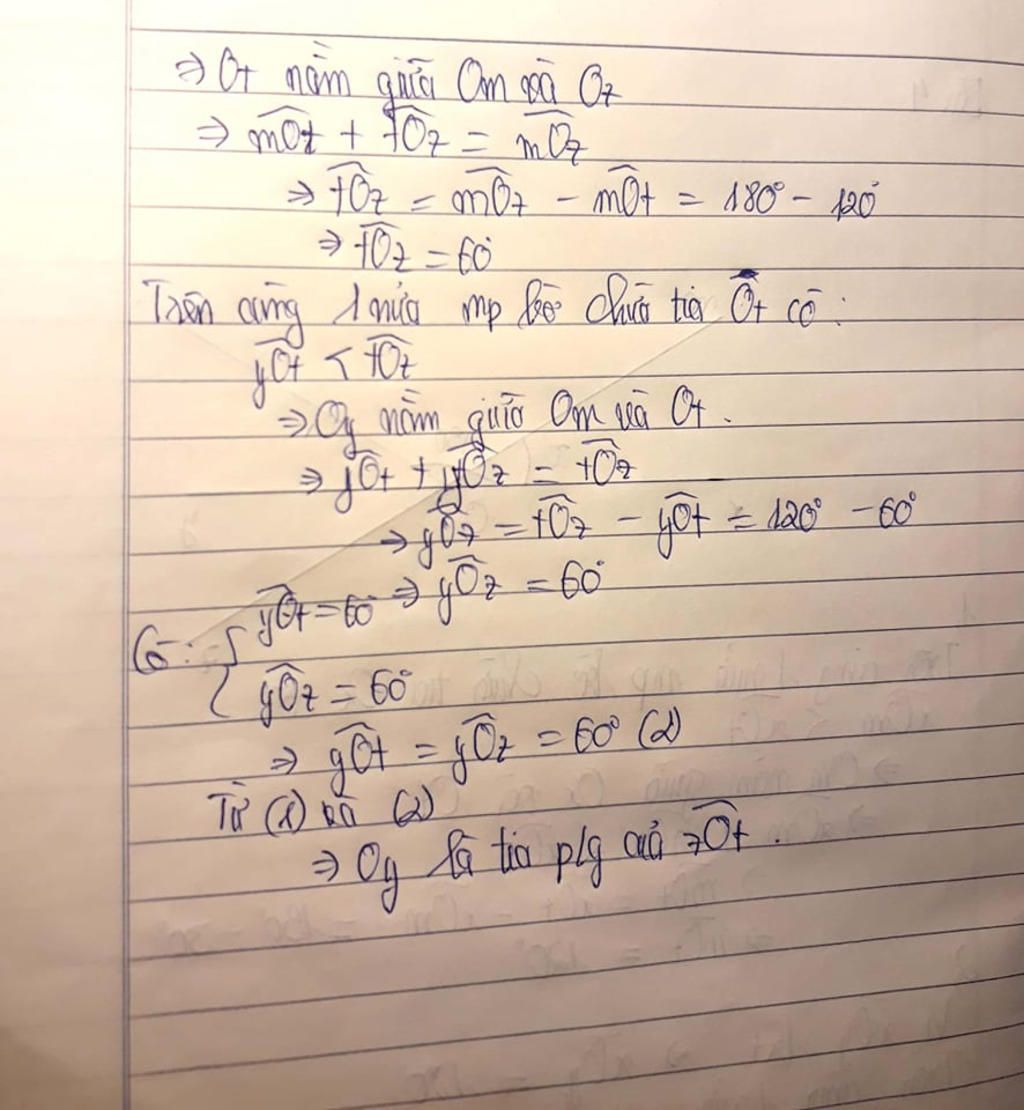 ⇒ Ot nằm giữa Om và Oz
⇒ mOt + tOz = mOz
⇒ tOz = mOz - mOt = 180° - 120°
⇒ tOz = 60°
Trên cùng 1 nửa mp bờ chứa tia Ot có :
yOt < tOz
⇒ Oy nằm giữa Om và Ot .
⇒ yOt + yOz = tOz
⇒ yOz = tOz - yOt = 120° - 60°
⇒ yOz = 60°
Có : { yOt = 60°
yOz = 60°
⇒ yOt = yOz = 60° (2)
Từ (1) và (2)
⇒ Oy là tia plg của zOt .